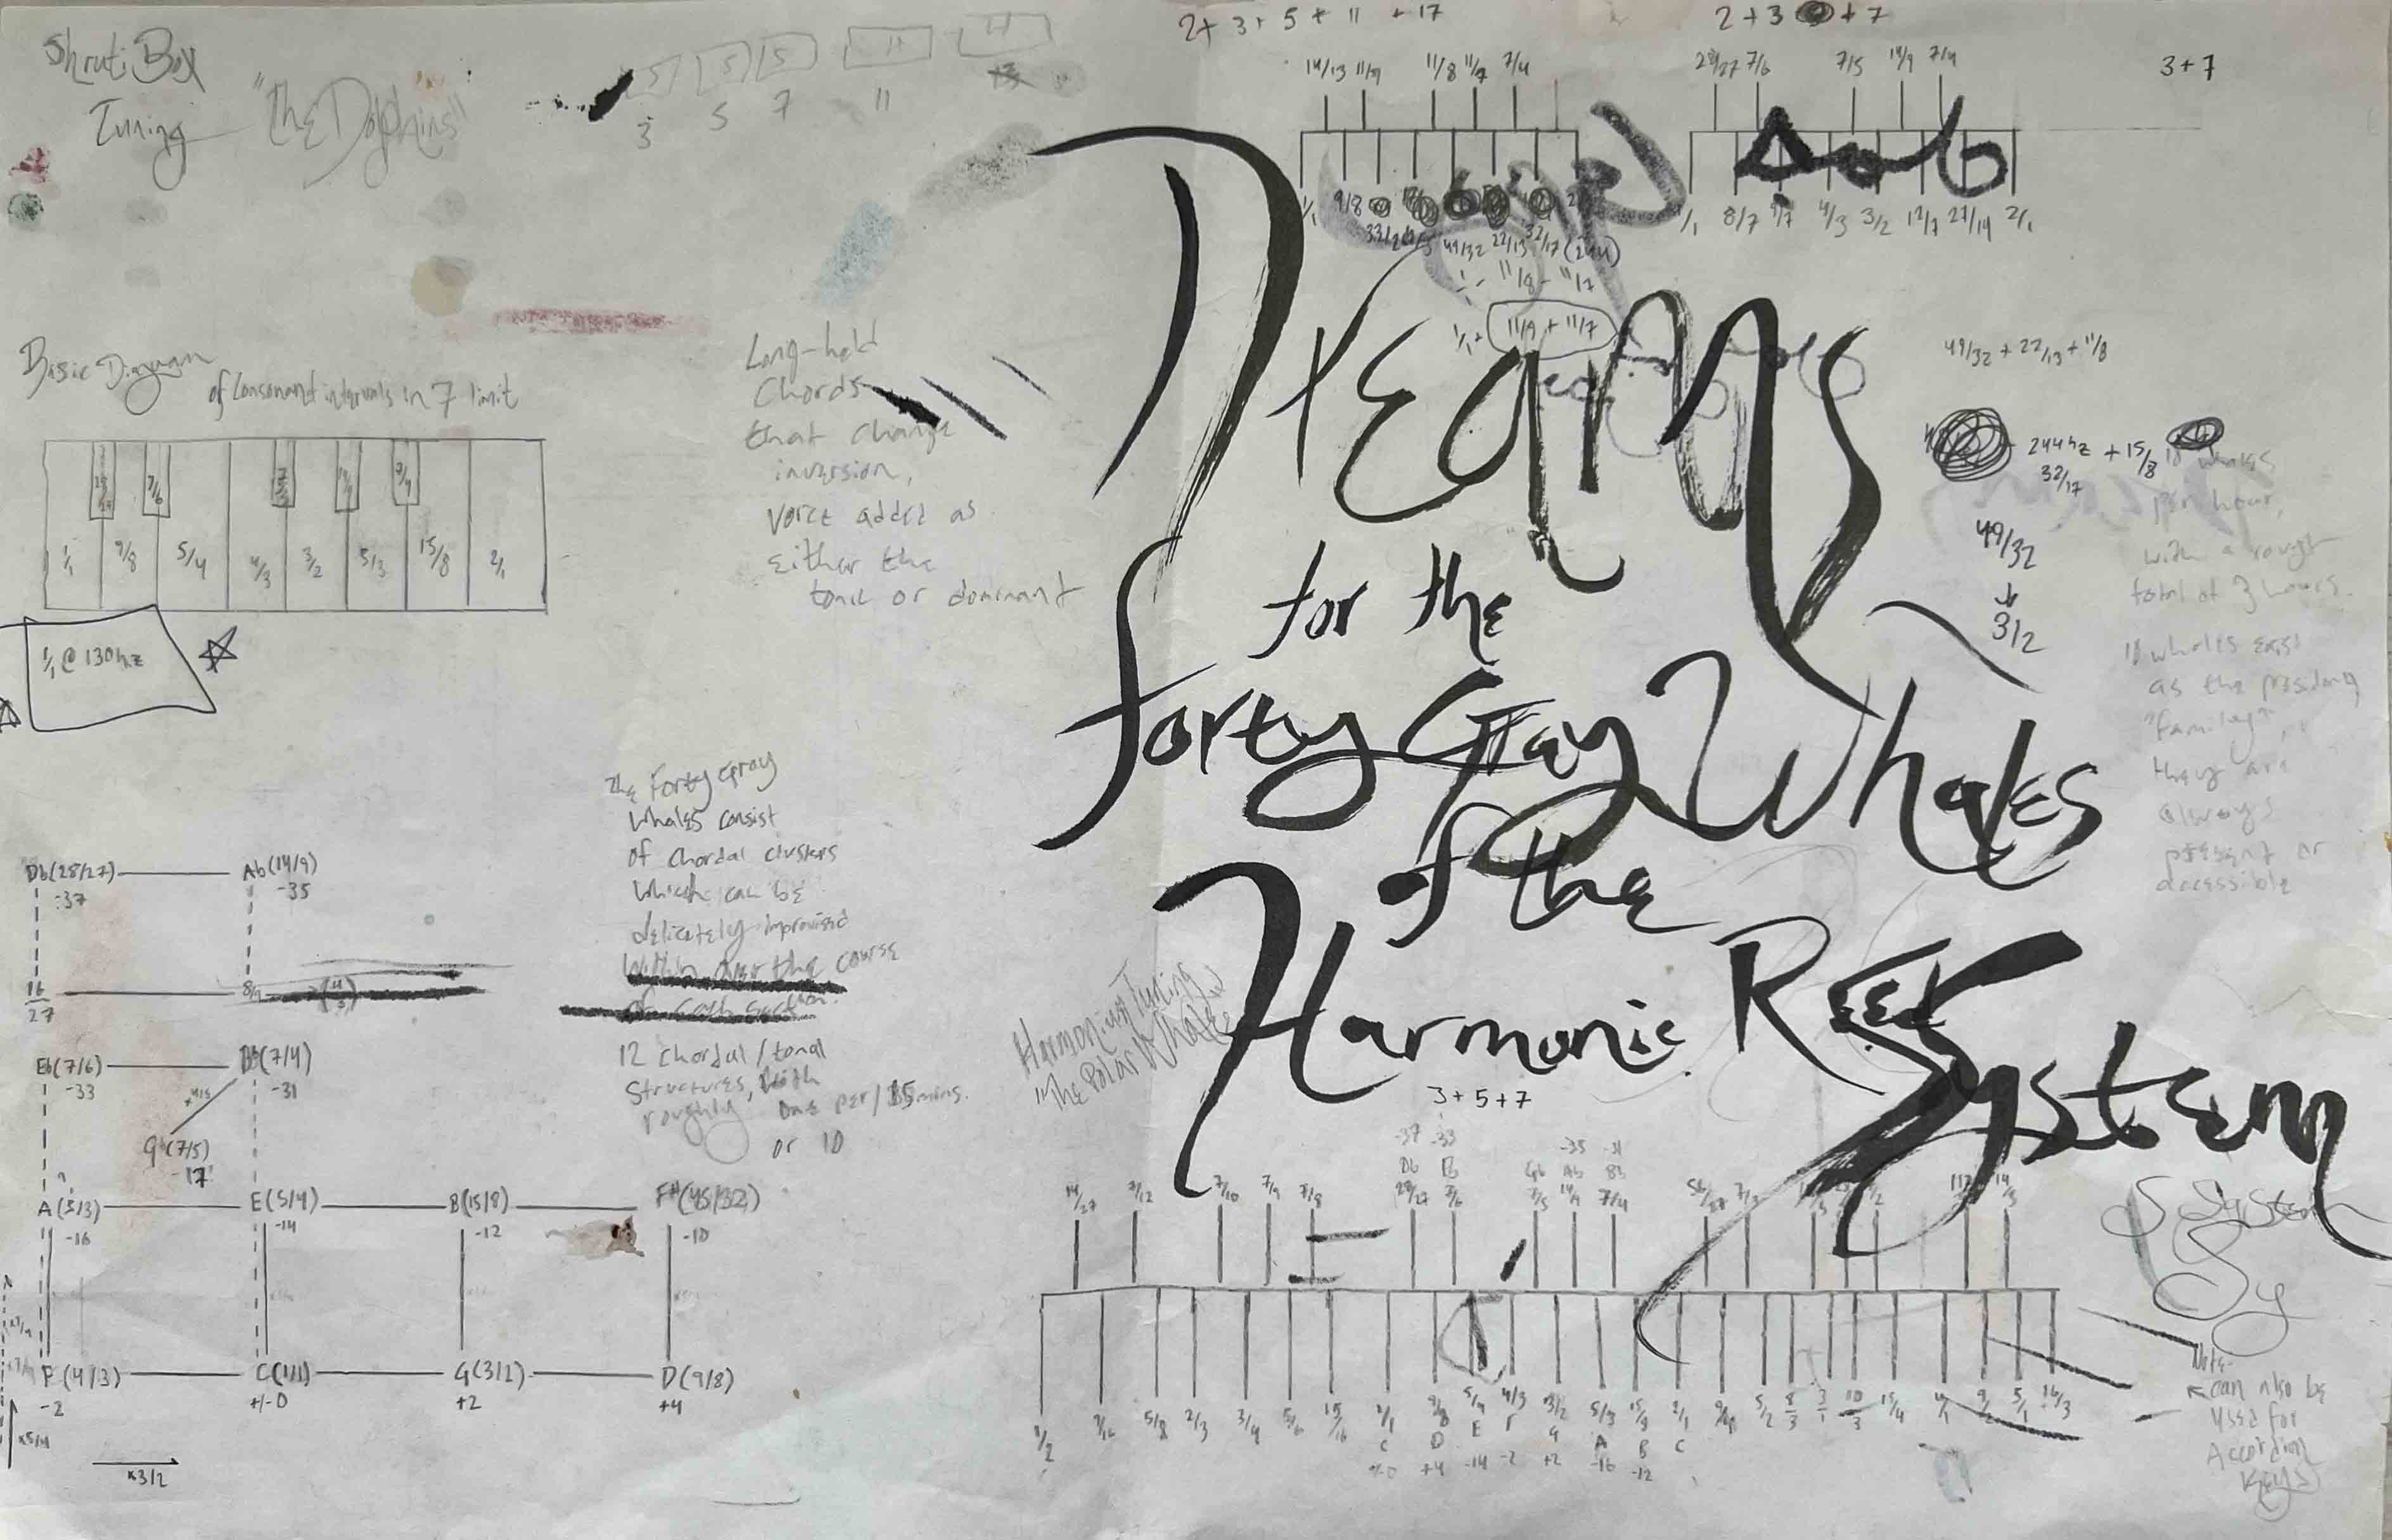 Shruti Box
Tuning
"The Dolphins"
5 5 5 11
3 5 7 11 13
2 + 3 + 5 + 11 + 17
14/13 11/9 11/8 11/7 7/4
1/1 9/8
49/32 22/13 32/17 (244)
1/1 - 11/8 - 11/7
1/1 + 11/9 + 11/7
2 + 3 + 7
28/27 7/6 7/5 14/9 7/4
1/1 8/7 9/7 4/3 3/2 12/7 27/14 2/1
3 + 7
49/32 + 22/13 + 11/8
244hz + 15/8
32/17
49/32
↓
3/2
18 whales
per hour,
with a rough
total of 3 hours.
18 whales exist
as the presiding
"family",
they are
always
present or
accessible
Basic Diagram
of Consonant intervals in 7 limit
28/27 7/6 7/5 14/9 7/4
1/1 9/8 5/4 4/3 3/2 5/3 15/8 2/1
1/1 @ 130hz
Long-held
Chords
that change
inversion,
voice added as
either the
tonic or dominant
Dreams
for the
Forty Gray Whales
of the
Harmonic Reed
System
the Forty Gray
Whales consist
of chordal clusters
which can be
delicately improvised
within over the course
of each section.
12 chordal / tonal
structures, with
roughly one per / 15 mins.
or 10
Harmonium Tuning
"The Polar Whale"
Db (28/27) Ab (14/9)
-37 -35
16/27 8/9 (4/3)
Eb (7/6) Bb (7/4)
-33 -31
x4/5
Gb (7/5)
-17
A (5/3) E (5/4) B (15/8) F# (45/32)
-16 -14 -12 -10
F (4/3) C (1/1) G (3/2) D (9/8)
-2 +/-0 +2 +4
x5/4
x3/2
3 + 5 + 7
-37 -33 -35 -31
Db Eb Gb Ab Bb
14/27 7/12 7/10 7/9 7/8 28/27 7/6 7/5 14/9 7/4 56/27 7/3
1/2 9/16 5/8 2/3 3/4 5/6 15/16 1/1 9/8 5/4 4/3 3/2 5/3 15/8 2/1 9/4 5/2 8/3 3/1 10/3 15/4 4/1 9/2 5/1 16/3
C D E F G A B C
+/-0 +4 -14 -2 +2 -16 -12
S System
Sy
Note-
can also be
used for
Accordion
Keys